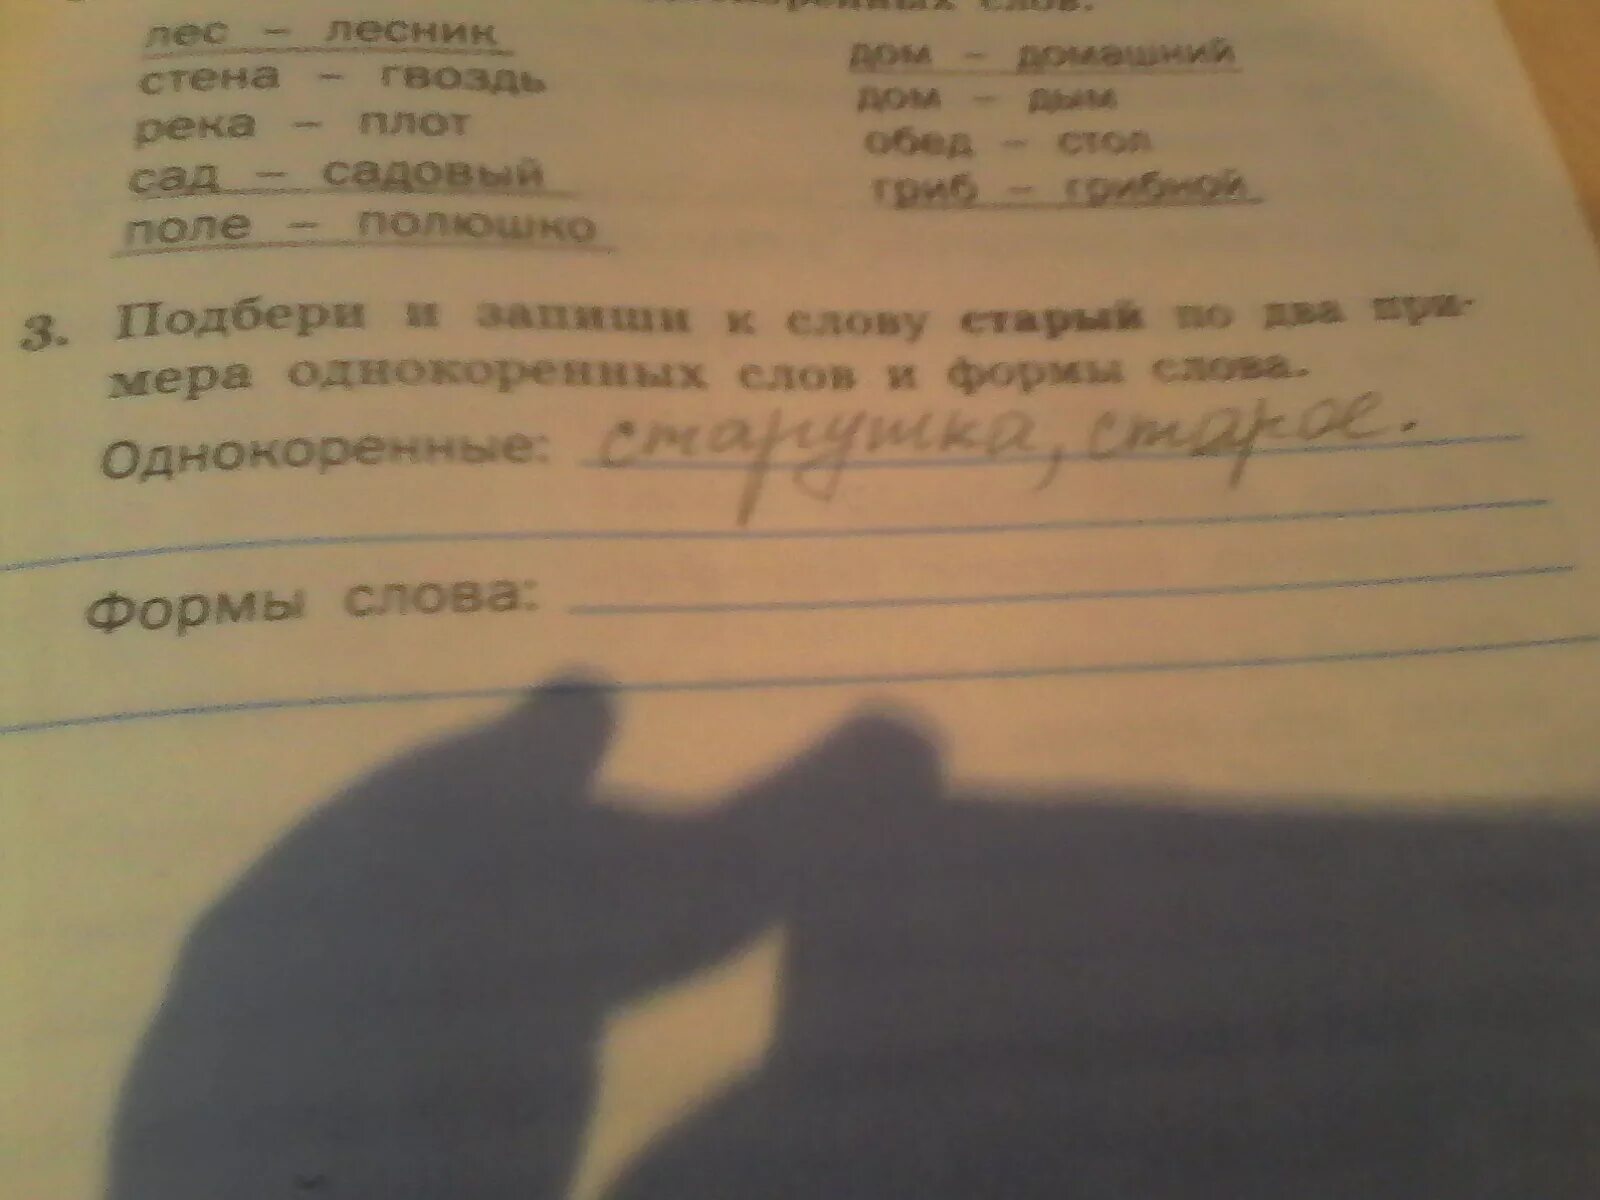 слов.
лес – лесник
стена – гвоздь
река – плот
сад – садовый
поле – полюшко
дом – домашний
дом – дым
обед – стол
гриб – грибной
3. Подбери и запиши к слову старый по два при-
мера однокоренных слов и формы слова.
Однокоренные: старушка, старое.
Формы слова: